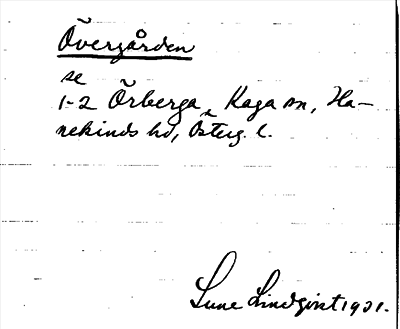 Övergården
se
1-2 Örberga, Kaga sn, Ha-
nekinds hd, Österg. l.
Sune Lindqvist 1921.